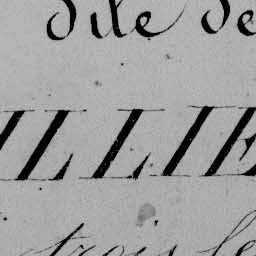 dite de
ILLIE
trois le